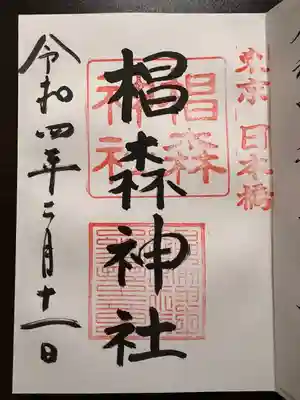 東京 日本橋
椙森神社
椙森
神社
令和四年二月十一日